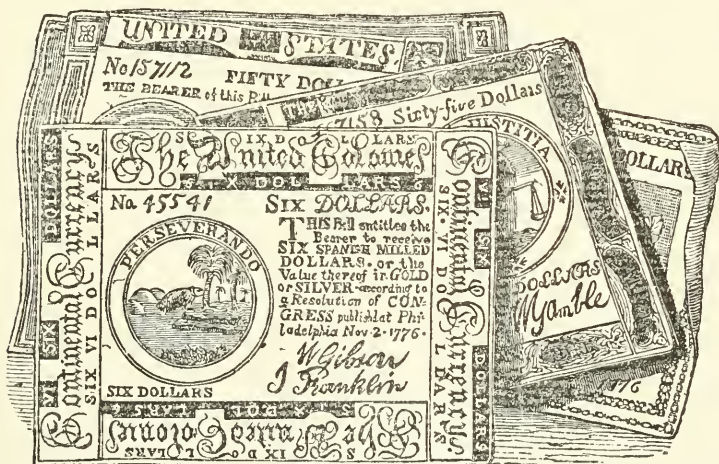 UNITED STATES
No 157112 FIFTY DOLL
THE BEARER of this Bill
7158 Sixty-five Dollars
JUSTITIA
DOLLARS
DOLLARS
W Gamble
1776
SIX DOLLARS
The United Colonies
SIX DOLLARS
Continental Currency
SIX VI DOLLARS
No 45541 SIX DOLLARS.
THIS Bill entitles the
Bearer to receive
SIX SPANISH MILLED
DOLLARS, or the
Value thereof in GOLD
or SILVER according to
a Resolution of CON-
GRESS publishd at Phi-
ladelphia Nov. 2. 1776.
PERSEVERANDO
W Gibson
J Franklin
SIX DOLLARS
Continental Currency
SIX VI DOLLARS
The United Colonies
SIX DOLLARS